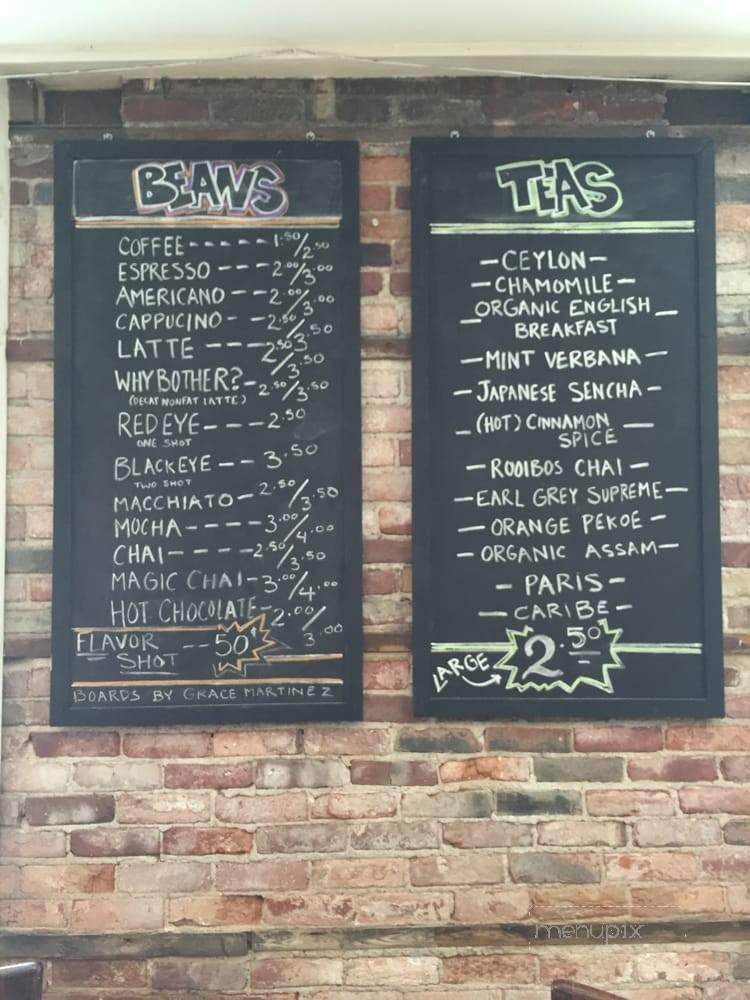 BEANS
COFFEE ----- 1.50/2.50
ESPRESSO --- 2.00/3.00
AMERICANO -- 2.00/3.00
CAPPUCINO -- 2.50/3.50
LATTE ---- 2.50/3.50
WHY BOTHER? - 2.50/3.50
(DECAF NONFAT LATTE)
RED EYE --- 2.50
ONE SHOT
BLACKEYE --- 3.50
TWO SHOT
MACCHIATO - 2.50/3.50
MOCHA ---- 3.00/4.00
CHAI ----- 2.50/3.50
MAGIC CHAI - 3.00/4.00
HOT CHOCOLATE - 2.00/3.00
FLAVOR SHOT -- 50¢
BOARDS BY GRACE MARTINEZ
TEAS
- CEYLON -
- CHAMOMILE -
- ORGANIC ENGLISH -
BREAKFAST
- MINT VERBANA -
- JAPANESE SENCHA -
- (HOT) CINNAMON -
SPICE
- ROOIBOS CHAI -
- EARL GREY SUPREME -
- ORANGE PEKOE -
- ORGANIC ASSAM -
- PARIS -
- CARIBE -
LARGE 2.50
menupix